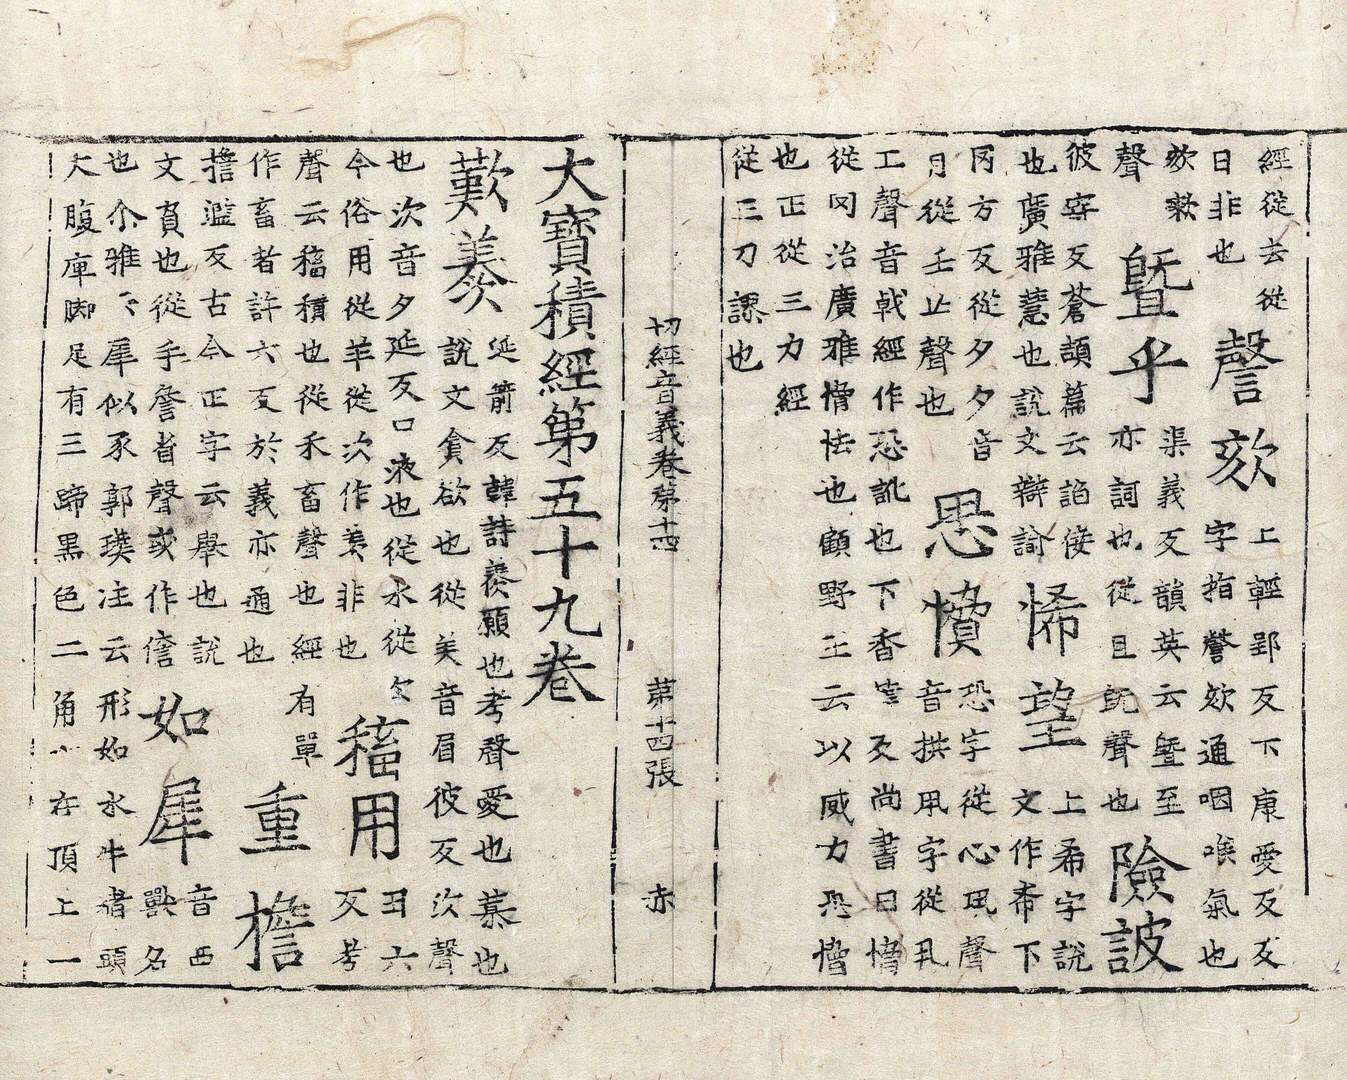 經從去從
日非也
謦欬
上輕郢反下康愛反反
字指謦欬通咽喉氣也
欬㰸
聲
曁乎
渠義反韻英云曁至
亦詞也從旦旣聲也
險詖
彼寄反蒼頡篇云諂佞
也廣雅慧也說文辯論
悕望
上希字說
文作㠻下
冈方反從夕夕音
月從壬㞢聲也
恐懀
恐字從心巩聲
音拱巩字從丮
工聲音戟經作恐訛也下香業反尚書曰懀
從冈治廣雅懀怯也顧野王云以威力恐懀
也正從三力經
從三刀誤也
切經音義卷第十四 第十四張 赤
大寶積經第五十九卷
歎羨
延箭反韓詩羨願也考聲愛也慕也
說文貪欲也從羑音眉彼反次聲
也次音夕延反口液也從水從欠
今俗用從羊從次作羡非也
稸用
丑六
反考
聲云稸積也從禾畜聲也經有單
作畜者許六反於義亦通也
重檐
擔濫反古今正字云舉也說
文負也從手詹省聲或作儋
如犀
音西
獸名
也尒雅云犀似豕郭璞注云形如水牛猪頭
大腹庳脚足有三蹄黑色二角一在頂上一